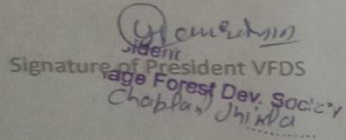 sident
Signature of President VFDS
age Forest Dev. Society
Chaplan Jhinda